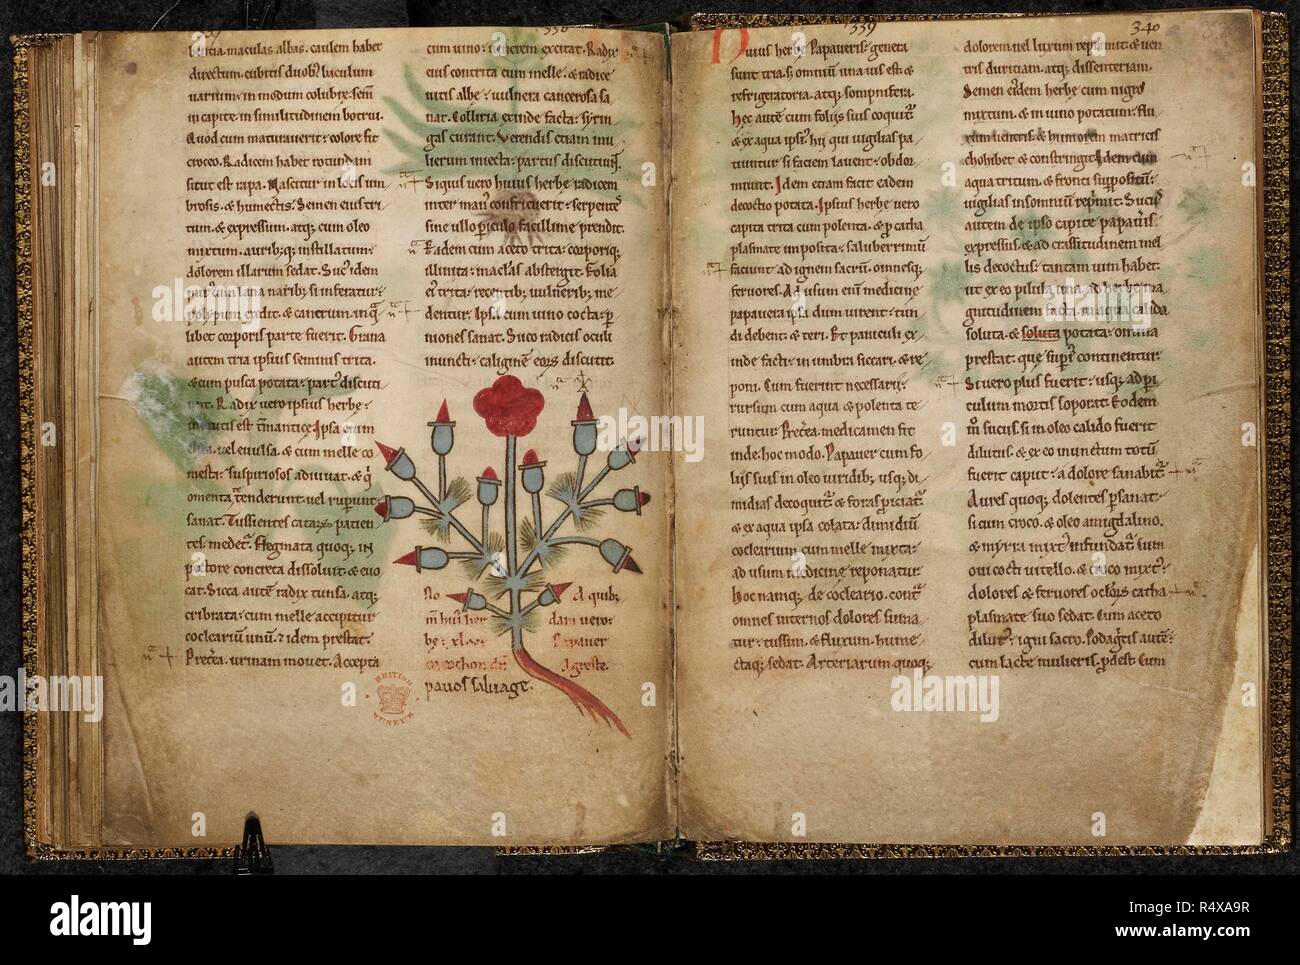 338
lentia. maculas albas. caulem habet
directum. cubitis duobꝫ baculum
uarium. in modum colubre. sem̄
in capite. in similitudinem botrui.
Quod cum maturauerit. colore fit
croceo. Radicem habet rotundam
sicut est rapa. Nascitur in locis um
brosis. & humectis. Semen eius tri
tum. & expressum. atqꝫ cum oleo
mixtum. auribꝫ instillatum.
dolorem illarum sedat. Suc' idem
cum lana naribꝫ si inferatur.
polypum excludit. & cancrum. in q̄
libet corporis parte fuerit. Grana
autem tria ipsius seminis trita.
& cum pusca potata. partū discuti
Radix uero ipsius herbe.
est Ipsa enim
uel euulsa. & cum melle co
mesta. suspiriosos adiuuat. &
omenta tenderunt. uel rupunt
sanat. Tussientes patien
tes medet̄. Flegmata quoqꝫ in
pectore concreta dissoluit. & euo
cat. Sicca autē radix tunsa. atqꝫ
cribrata. cum melle accipitur
coclearıū unū. idem prestat.
Preterea. urinam mouet. Accepta
cum uino. uenerem excitat. Radix
eius contrita cum melle. & radice
uitis albe. uulnera cancerosa sa
nat. Colliria exinde facta. syrin
gas curant. Verendis etiam mu
lierum iniecta. partus discutiunt.
Siquis uero huius herbe radicem
inter man' confricuerit. serpentes
sine ullo piculo facillime prendit.
Eadem cum aceto trita. corporiqꝫ
illinita. maclas abstergit. Folia
ei' trita. recentibꝫ uulneribꝫ me
dentur. Ipsa cum uino cocta. p
niones sanat. Suco radicis oculi
inuncti. caliginem eorum discutit.
No A quibꝫ
hui' her dam uero.
be. Papauer
Agreste.
pauos saluage.
BRITISH
MUSEUM
339
Huius herbe Papaueris. genera
sunt tria. s; omniū una uis est &
refrigeratoria. atqꝫ somnifera.
Hec autē cum foliis suis coquit̄.
& ex aqua ipsi' hii qui uigilias pa
tiuntur si faciem lauent. obdor
miunt. Idem etiam facit eadem
decoctio potata. Ipsius herbe uero
capita trita cum polenta. & p cata
plasmate imposita. saluberrimū
faciunt ad ignem sacrū. omnesqꝫ
feruores. Ad usum eni medicine
papauera ipsa dum uirent. tun
di debent. & teri. Et paniculi ex
inde facti. in umbra siccari. & re
poni. Cum fuerint necessarii.
rursum cum aqua & polenta te
runtur. Preterea. medicamen fit
inde. hoc modo. Papauer cum fo
liis suis in oleo uiridibꝫ usqꝫ di
midias decoquit̄. & foras piciat̄.
& ex aqua ipsa colata. dimidiū
coclearium cum melle mixta.
ad usum medicine reponatur.
Hoc namqꝫ de cocleario. cont̄
omnes internos dolores sumat
tur. tussim. & fluxum. hume
ctaqꝫ sedat. Arteriarum quoqꝫ
340
dolorem. uel luxum reprimit. & uen
tris duriciam. atqꝫ dissenteriam.
Semen eiusdem herbe cum nigro
mixtum. & in uino potatum. flu
xum uentris & humorem matricis
chohibet & constringit. Idem cum
aqua tritum. & fronti suppositū.
uigilias insomniū reprimit. Sucus
autem de ipso capite papaueris
expressus. & ad crassitudinem mel
lis decoctus. tantam uim habet.
ut ex eo pilula una ad herbe ma
gnitudinem facta. in aqua calida
soluta. & soluta potata. omnia
prestat. que superius continentur.
Si uero plus fuerit. usqꝫ ad peri
culum mortis soporat. Eodem
m̊ sucus. si in oleo calido fuerit
dilutus. & ex eo inunctum totū
fuerit caput. a dolore sanabit̄.
Aures quoqꝫ dolentes psanat.
si cum croco. & oleo amigdalino.
& mirra mixt' infundat̄. Cum
oui cocti uitello. & croco mixt'.
dolores & feruores oclorum catha
plasmate suo sedat. Cum aceto
dilut'. igni sacro. Podagris autē.
cum lacte mulieris. pdest. Cum
alamy
Image ID: R4XA9R
www.alamy.com